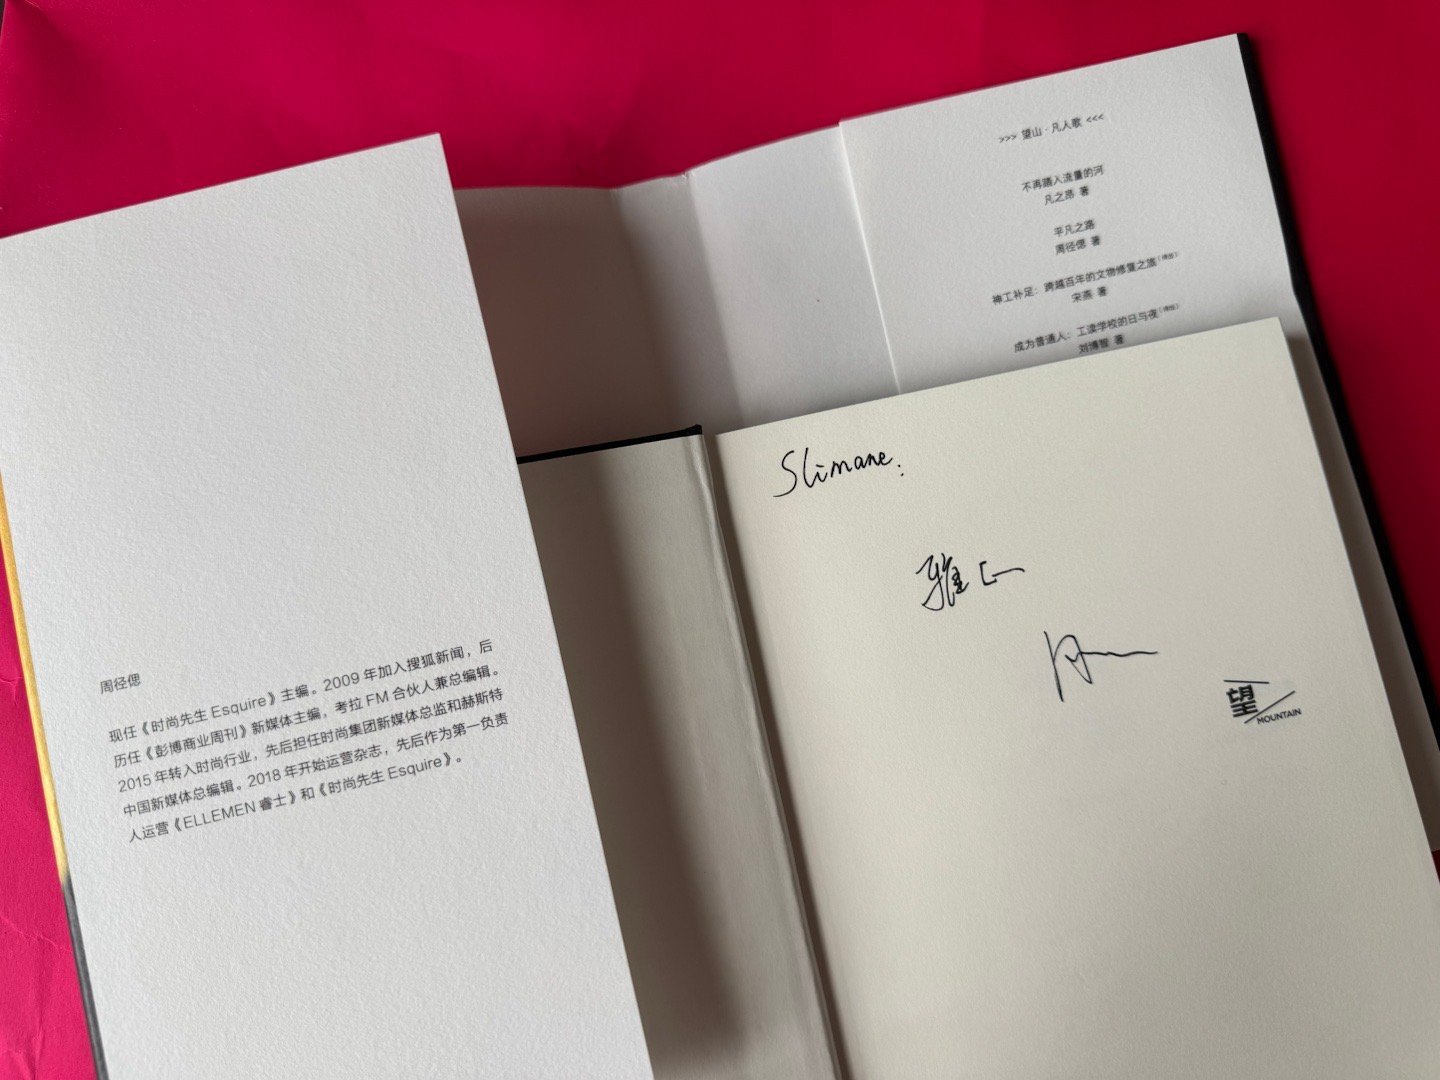 周径偲
现任《时尚先生 Esquire》主编。2009 年加入搜狐新闻，后
历任《彭博商业周刊》新媒体主编，考拉 FM 合伙人兼总编辑。
2015 年转入时尚行业，先后担任时尚集团新媒体总监和赫斯特
中国新媒体总编辑。2018 年开始运营杂志，先后作为第一负责
人运营《ELLEMEN 睿士》和《时尚先生 Esquire》。
>>> 望山 · 凡人歌 <<<
不再踏入流量的河
凡之昂 著
平凡之路
周径偲 著
神工补足：跨越百年的文物修复之旅（待出）
宋燕 著
成为普通人：工读学校的日与夜（待出）
刘博智 著
Slimane:
雅正
望
MOUNTAIN